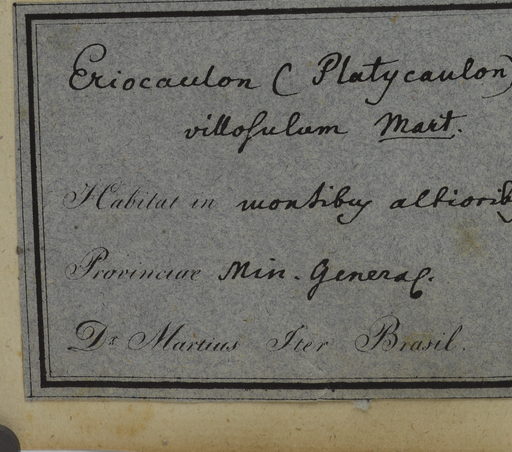 Eriocaulon (Platycaulon)
villosulum Mart.
Habitat in montibus altiorib
Provinciae Min. Generaes.
Dr. Martius Iter Brasil.